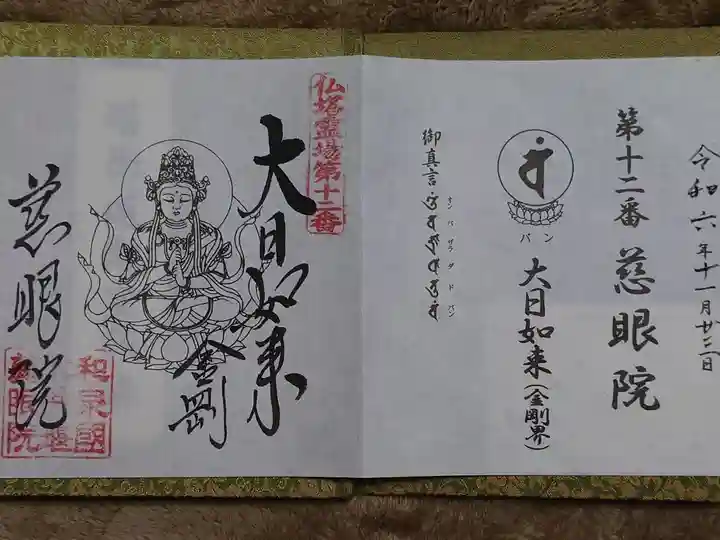 令和六年十一月廿三日
第十二番 慈眼院
バン
大日如来(金剛界)
御真言
オン バザラ ダド バン
仏塔霊場第十二番
大日如来
金剛
慈眼院